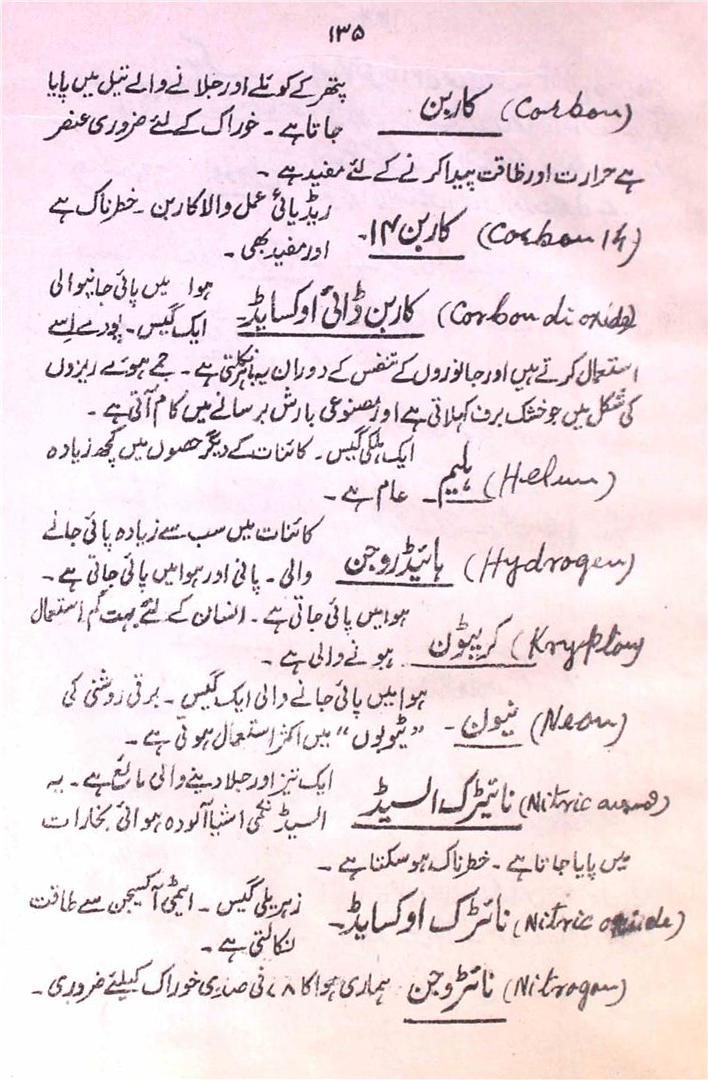 ۱۳۵
(Carbon) کاربن پتھر کے کوئلے اور جلانے والے تیل میں پایا
جاتا ہے۔ خوراک کے لئے ضروری عنصر
ہے حرارت اور طاقت پیدا کرنے کے لئے مفید ہے۔
(Carbon 14) کاربن ۱۴۔ ریڈیائی عمل والا کاربن۔ خطرناک ہے
اور مفید بھی۔
(Carbon dioxide) کاربن ڈائی اوکسایڈ۔ ہوا میں پائی جانیوالی
ایک گیس۔ پودے اسے
استعمال کرتے ہیں اور جانوروں کے تنفس کے دوران یہ باہر نکلتی ہے۔ جمے ہوئے ریزوں
کی شکل میں جو خشک برف کہلاتی ہے اور مصنوعی بارش برسانے میں کام آتی ہے۔
(Helium) ہلیم۔ ایک ہلکی گیس۔ کائنات کے دیگر حصوں میں کچھ زیادہ
عام ہے۔
(Hydrogen) ہائیڈروجن کائنات میں سب سے زیادہ پائی جانے
والی۔ پانی اور ہوا میں پائی جاتی ہے۔
(Krypton) کریپٹون ہوا میں پائی جاتی ہے۔ انسان کے لئے بہت کم استعمال
ہونے والی ہے۔
(Neon) نیون۔ ہوا میں پائی جانے والی ایک گیس۔ برقی روشنی کی
”ٹیوبوں“ میں اکثر استعمال ہوتی ہے۔
(Nitric acid) نائیٹرک السیڈ ایک تیز اور جلا دینے والی مائع ہے۔ یہ
السیڈ نکمی اشیا آلودہ ہوائی بخارات
میں پایا جاتا ہے۔ خطرناک ہو سکتا ہے۔
(Nitric oxide) نائٹرک اوکسایڈ۔ زہریلی گیس۔ ایٹمی آکسیجن سے طاقت
نکالتی ہے۔
(Nitrogen) نائٹروجن ہماری ہوا کا ۷۸ فی صدی خوراک کیلئے ضروری۔